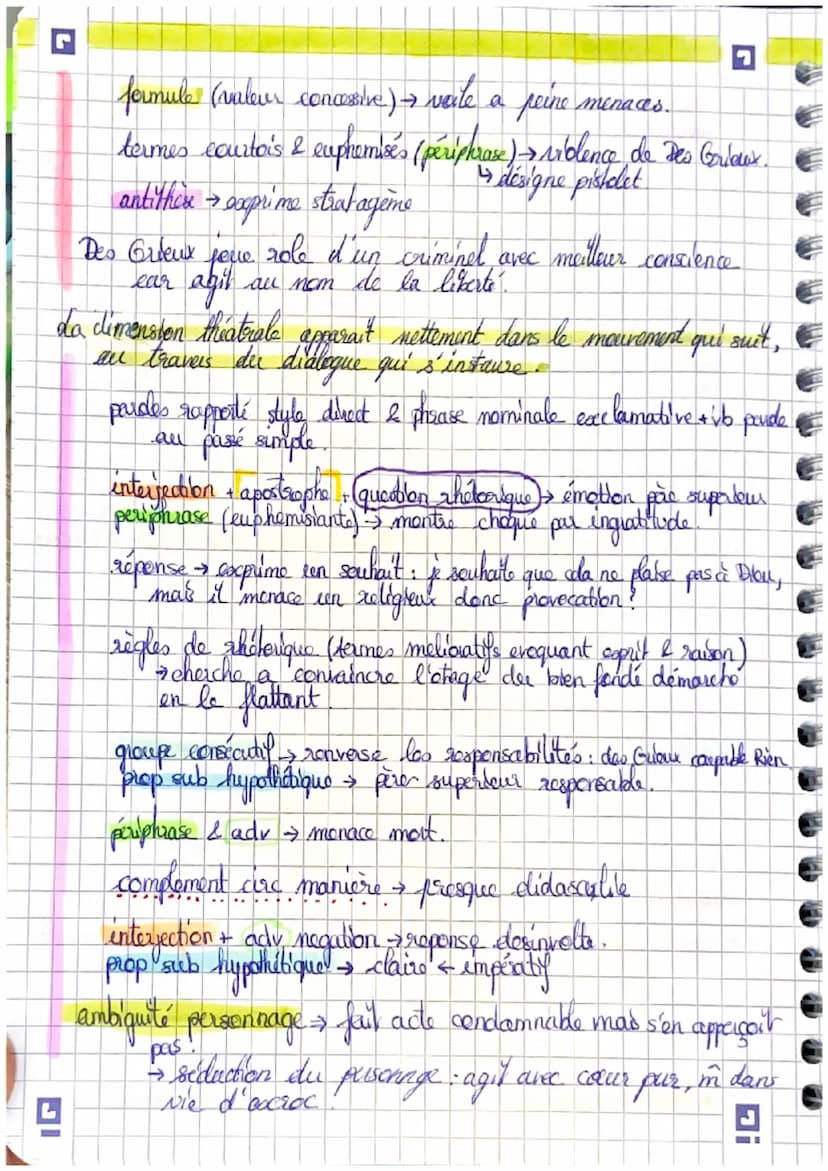 formule (valeur concessive) → voile a peine menaces.
termes courtois & euphemisés (périphrase) → violence de Des Grieux.
↳ désigne pistolet
antithèse → exprime stratagème
Des Grieux joue role d'un criminel avec meilleur conscience
car agit au nom de la liberté.
La dimension théatrale apparait nettement dans le mouvement qui suit,
au travers du dialogue qui s'instaure.
paroles rapporté style direct & phrase nominale exclamative + vb parole
au passé simple.
interjection + apostrophe + question rhétorique → émotion père superieur
periphrase (euphemisante) → montre choqué par ingratitude.
réponse → exprime un souhait : je souhaite que cela ne plaise pas à Dieu,
mais il menace un religieux donc provocation !
règles de rhétorique (termes melioratifs evoquant esprit & raison)
→ cherche a convaincre l'otage du bien fondé démarche
en le flattant.
groupe consécutif → renverse les responsabilités : des Grieux coupable Rien
prop sub hypothétique → père superieur responsable.
périphrase & adv → menace mort.
complement circ manière → presque didascalie
interjection + adv negation → reponse desinvolte.
prop sub hypothétique → claire + impératif
ambiguité personnage → fait acte condamnable mais s'en apperçoit
pas.
→ séduction du personnage : agit avec cœur pur, m̂ dans
vie d'escroc.